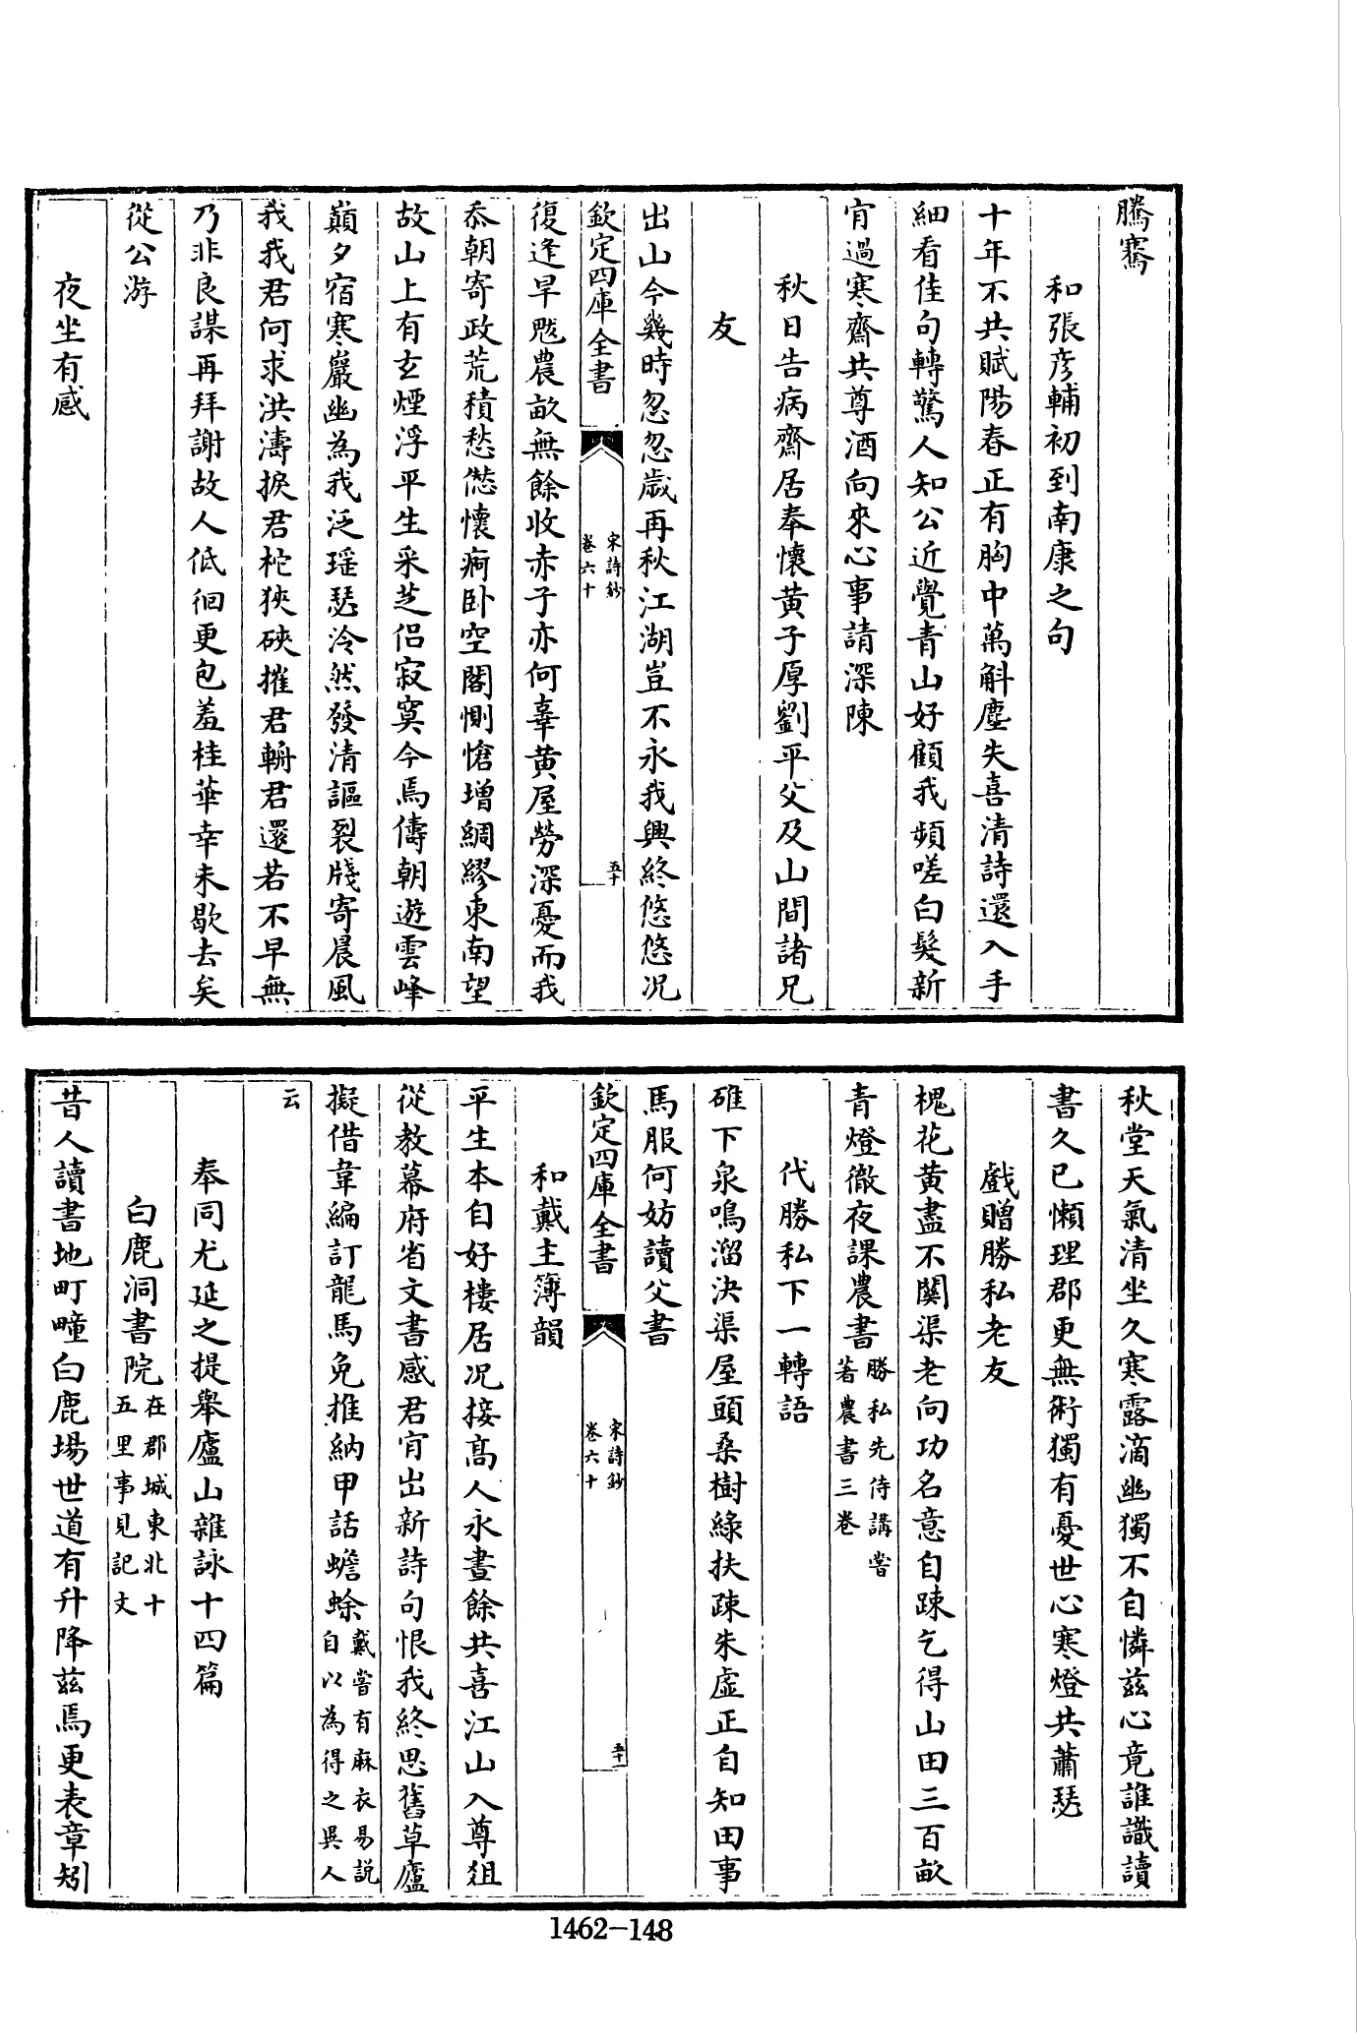 騰騫
和張彥輔初到南康之句
十年不共賦陽春正有胸中萬斛塵失喜清詩還入手
細看佳句轉驚人知公近覺青山好顧我頻嗟白髮新
肯過寒齋共尊酒向來心事請深陳
秋日告病齋居奉懷黃子厚劉平父及山間諸兄
友
出山今幾時忽忽歲再秋江湖豈不永我興終悠悠況
欽定四庫全書
宋詩鈔
卷六十
五十
復逢旱魃農畝無餘收赤子亦何辜黃屋勞深憂而我
忝朝寄政荒積愁慼懷痾臥空閣惻愴增綢繆東南望
故山上有玄煙浮平生采芝侶寂寞今焉儔朝遊雲峰
巔夕宿寒巖幽為我泛瑤瑟泠然發清謳裂牋寄晨風
我我君何求洪濤捩君柁狹硤摧君輈君還若不早無
乃非良謀再拜謝故人低徊更包羞桂華幸未歇去矣
從公游
夜坐有感
秋堂天氣清坐久寒露滴幽獨不自憐茲心竟誰識讀
書久已懶理郡更無術獨有憂世心寒燈共蕭瑟
戲贈勝私老友
槐花黃盡不關渠老向功名意自踈乞得山田三百畝
青燈徹夜課農書勝私先侍講嘗
著農書三卷
代勝私下一轉語
碓下泉鳴溜決渠屋頭桑樹綠扶疎朱虛正自知田事
馬服何妨讀父書
欽定四庫全書
宋詩鈔
卷六十
五十
和戴主簿韻
平生本自好樓居況接高人永晝餘共喜江山入尊俎
從教幕府省文書感君肯出新詩句恨我終思舊草廬
擬借韋編訂龍馬免推納甲話蟾蜍戴嘗有麻衣易說
自以為得之異人
云
奉同尤延之提舉廬山雜詠十四篇
白鹿洞書院在郡城東北十
五里事見記文
昔人讀書地町疃白鹿場世道有升降茲焉更表章矧
1462-148